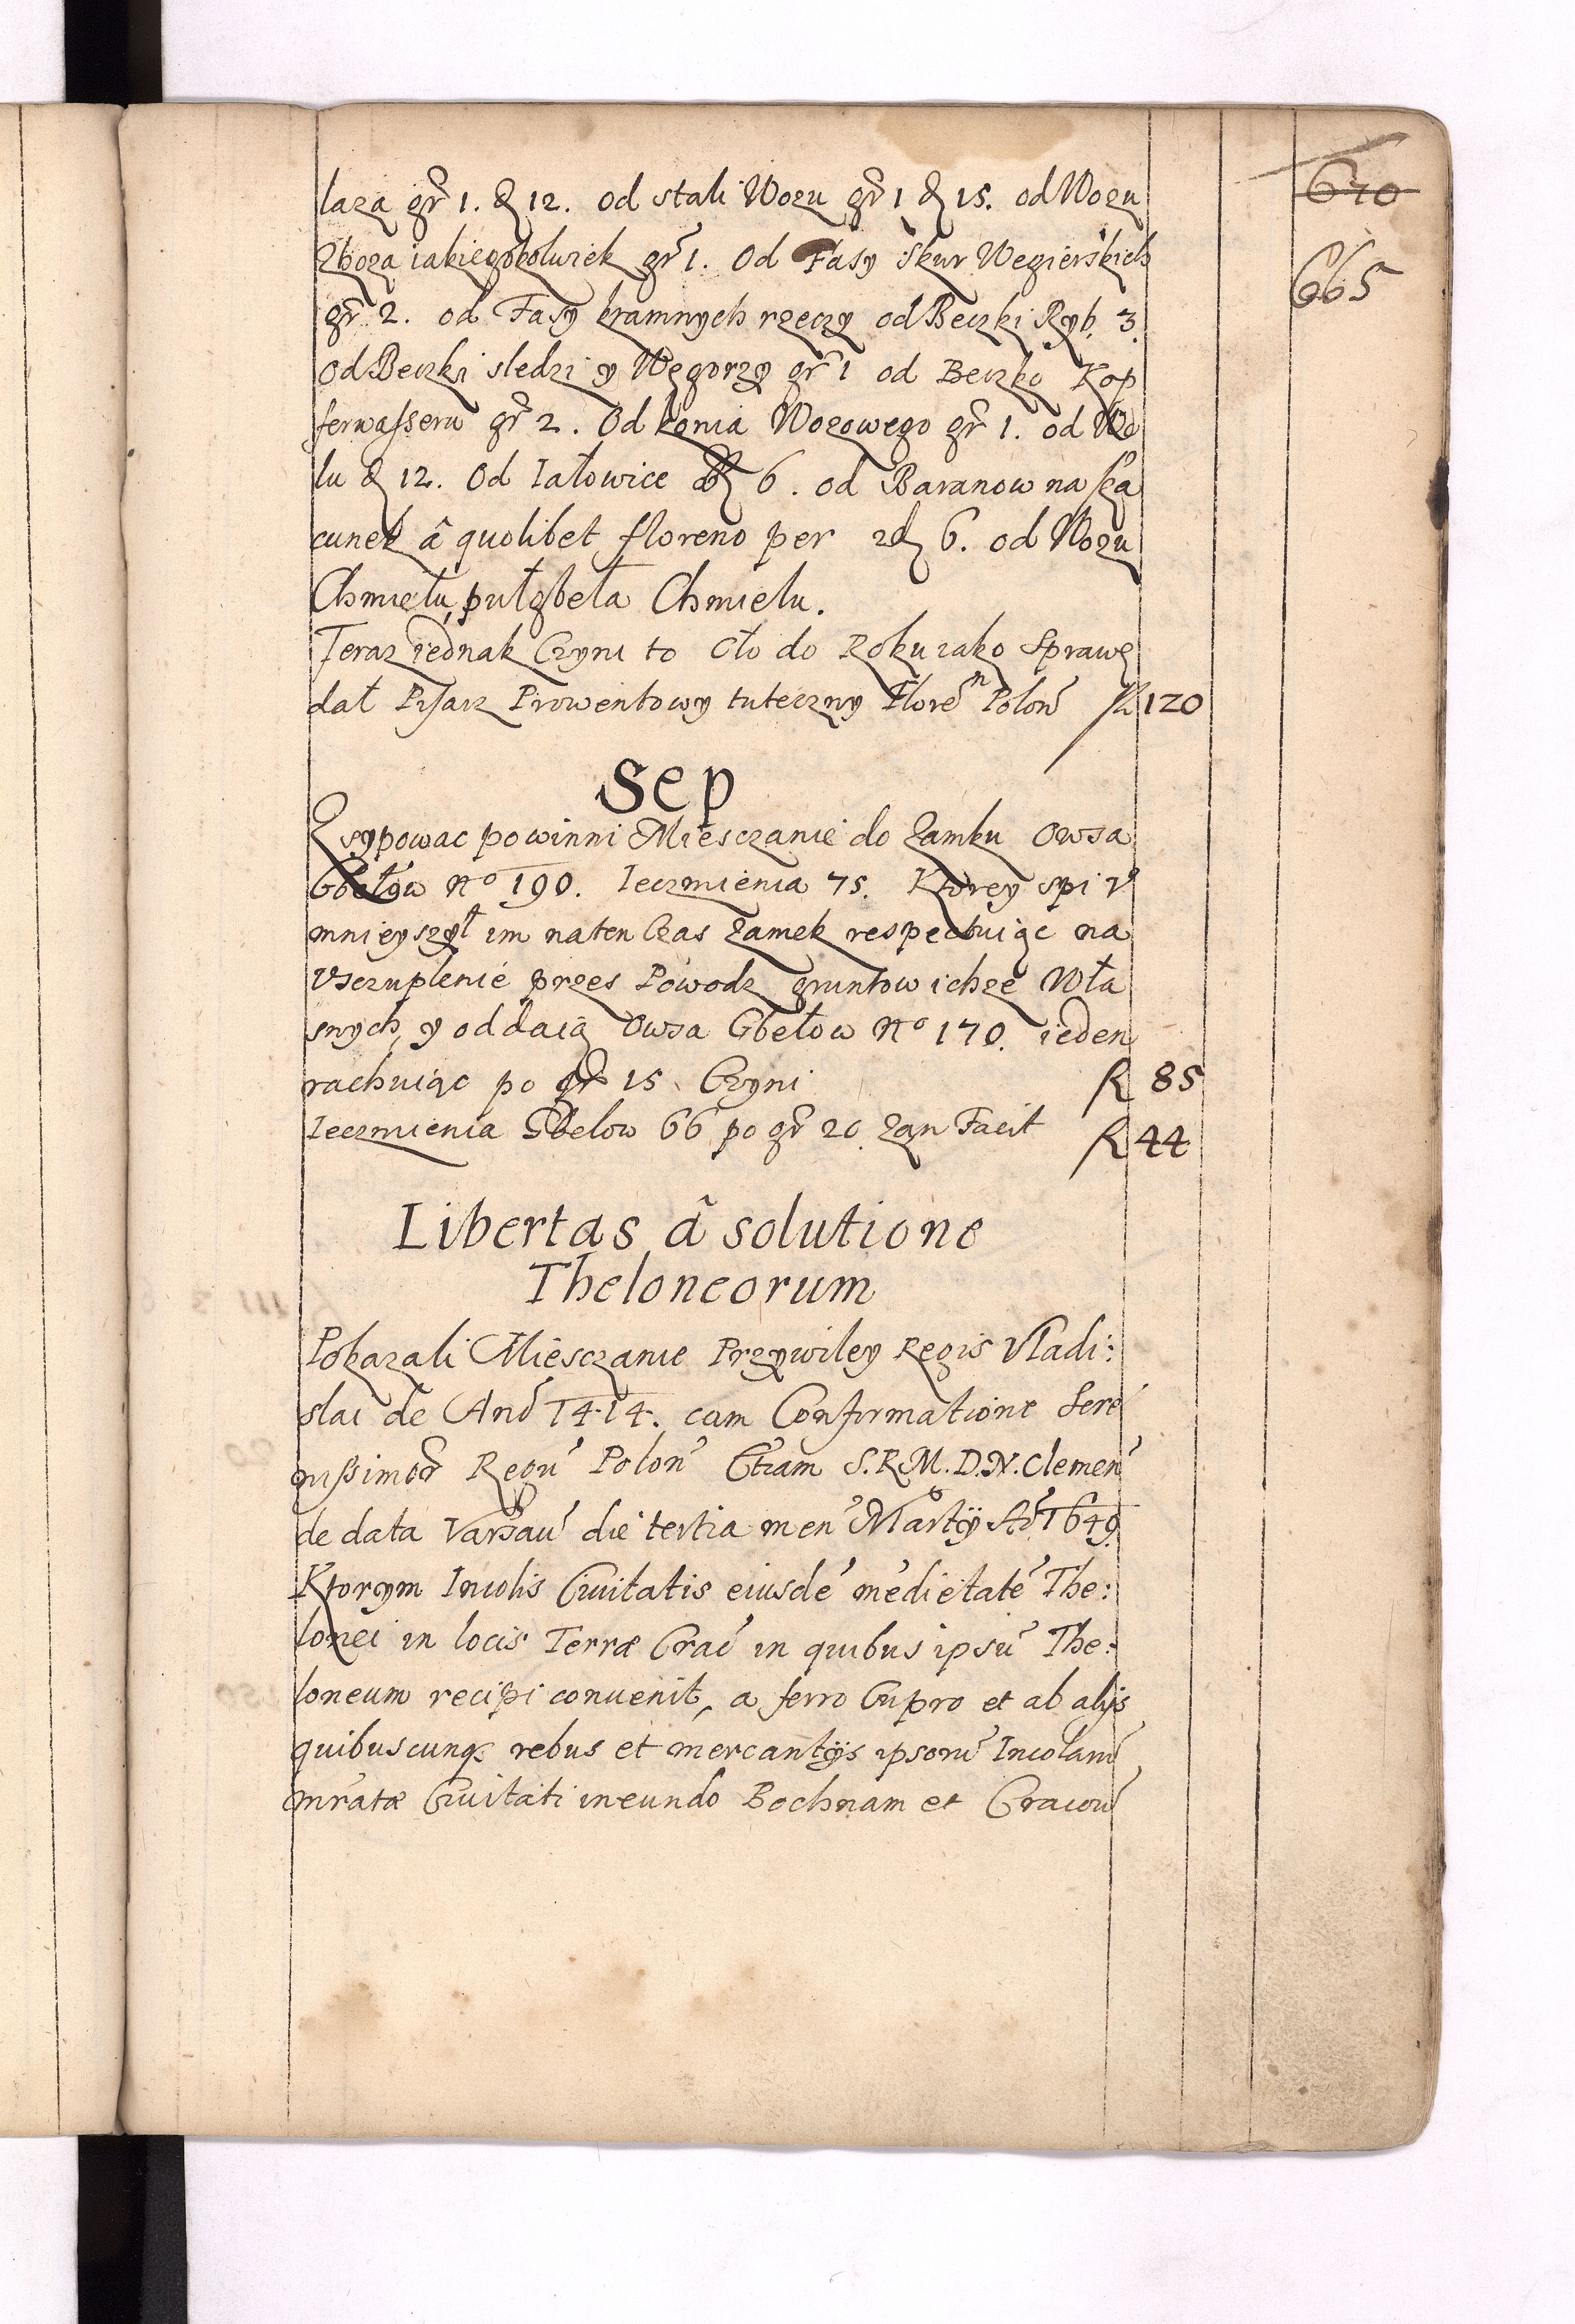 670
665
laza gr 1. ₰ 12. od stali Wozu gr 1 ₰ 15. od Wozu
Zboza iakiegokolwiek gr 1. Od Fasy skur Wegierskich
gr 2. od Fasy kramnych rzeczy od Beczki Ryb 3.
Od Beczki sledzi y Węgorzy gr 1 od Beczki Kop
ferwasseru gr 2. Od konia Wozowego gr 1. od Wo
lu ₰ 12. Od Iałowice ₰ 6. od Baranow na sza
cunek â quolibet floreno per ₰ 6. od Wozu
Chmielu, pułgbeła Chmielu.
Teraz iednak Czyni to Cło do Roku iako Sprawę
dał Pisarz Prowentowy tuteczny Floren Polon fl 120
Sep
Zsypowac powinni Miesczanie do Zamku Owsa
Gbełow No 190. Ieczmienia 75. Ktorey spi v
mnieyszył im naten Czas Zamek respectuiąc na
Vsczuplenie przes Powodz gruntow ichze Wła
snych, y oddaią Owsa Gbełow No 170. ieden
rachuiąc po gr 15. Czyni fl 85
Ieczmienia Gbelow 66 po gr 20. Zan Facit fl 44
Libertas â solutione
Theloneorum
Pokazali Miesczanie Przywiley Regis Vladi:
slai de Anô 1414. cum Confirmatione Sere
nissimor Regũ Polon̄ Etiam S.R.M.D.N. Clemen̄
de data Varsau̓ die tertia men̄ Martÿ Aõ 1649.
Ktorym Incolis Ciuitatis eiusdẽ medietatẽ The:
lonei in locis Terræ Crac̄ in quibus ipsũ The:
loneum recipi conuenit, a ferro Cupro et ab alijs
quibuscunq; rebus et mercantijs ipsorũ Incolarũ
mratæ Ciuitati ineundo Bochnam et Cracou̓